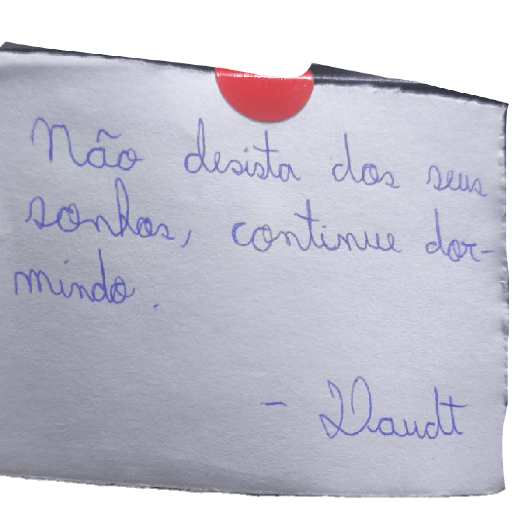 Não desista dos seus
sonhos, continue dor-
mindo.
- Daudt